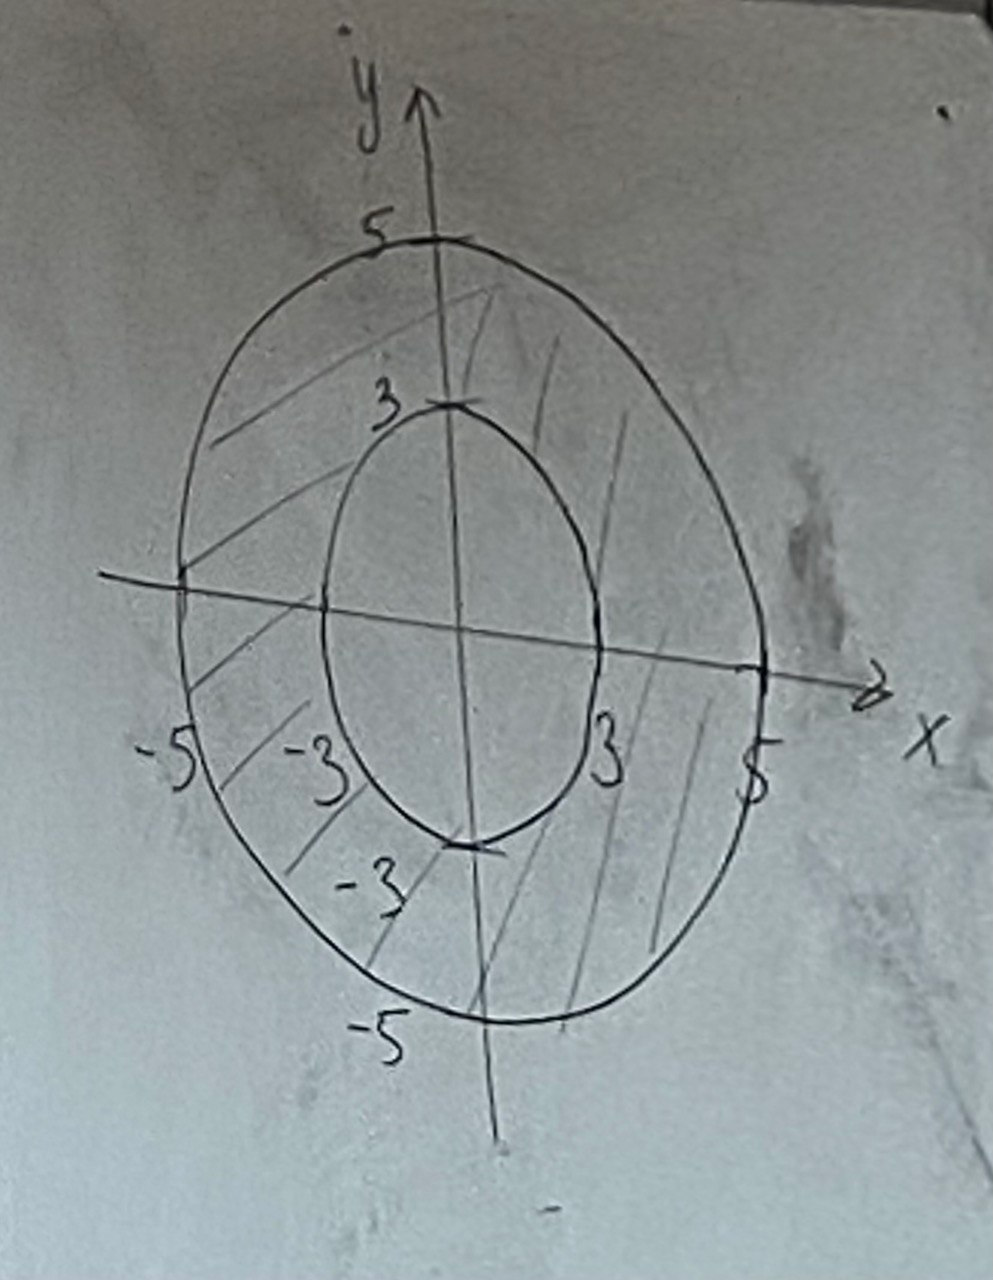 y
5
3
-5
-3
3
5
x
-3
-5